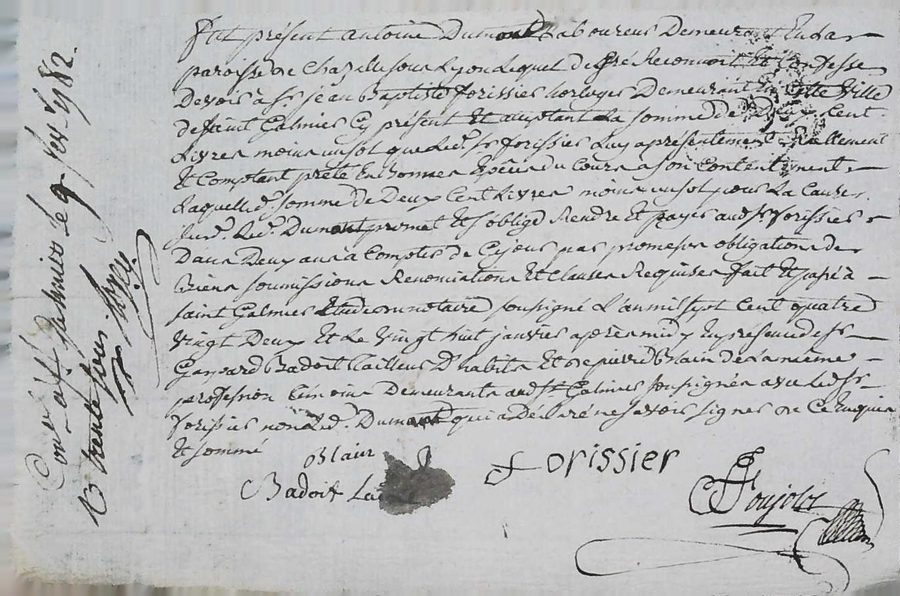 fut présent antoine Dumont Laboureur Demeurant En La
paroisse de Chapelle sous Lequel de gré Reconnoit Et Confesse
Devoir a Sr jean Baptiste forissier horloger Demeurant En cette Ville
de saint Galmier Cy présent Et acceptant La somme de Deux Cent
Livres moins un sol que Led. Sr forissier Luy a présentement Reellement
Et Comptant prété En bonnes Espèces du Cours a son Contentement
Laquelle de. somme de Deux Cent Livres moins un sol pour La Cause
Led. Dumont promet Et s'oblige Rendre Et payer aud. Sr forissier
Dans Deux ans a Compter de Ce jour par promesse obligation de
Biens soumissions Renonciations Et Clauses Requises fait Et passé a
saint Galmier Etude du notaire soussigné L'an mil sept Cent quatre
Vingt Deux Et Le Vingt huit janvier apres midy En presence de Sr
Gaspard Badoit tailleur D'habits Et de pierre Blain de La meme
profession temoins Demeurants aud. St. Galmier soussignés avec Led. Sr
forissier non Led. Dumont qui a Declaré ne savoir signer de Ce Enquis
Et sommé
Blain
Badoit
forissier
Poujolx
le 9 fév. 1782.
13